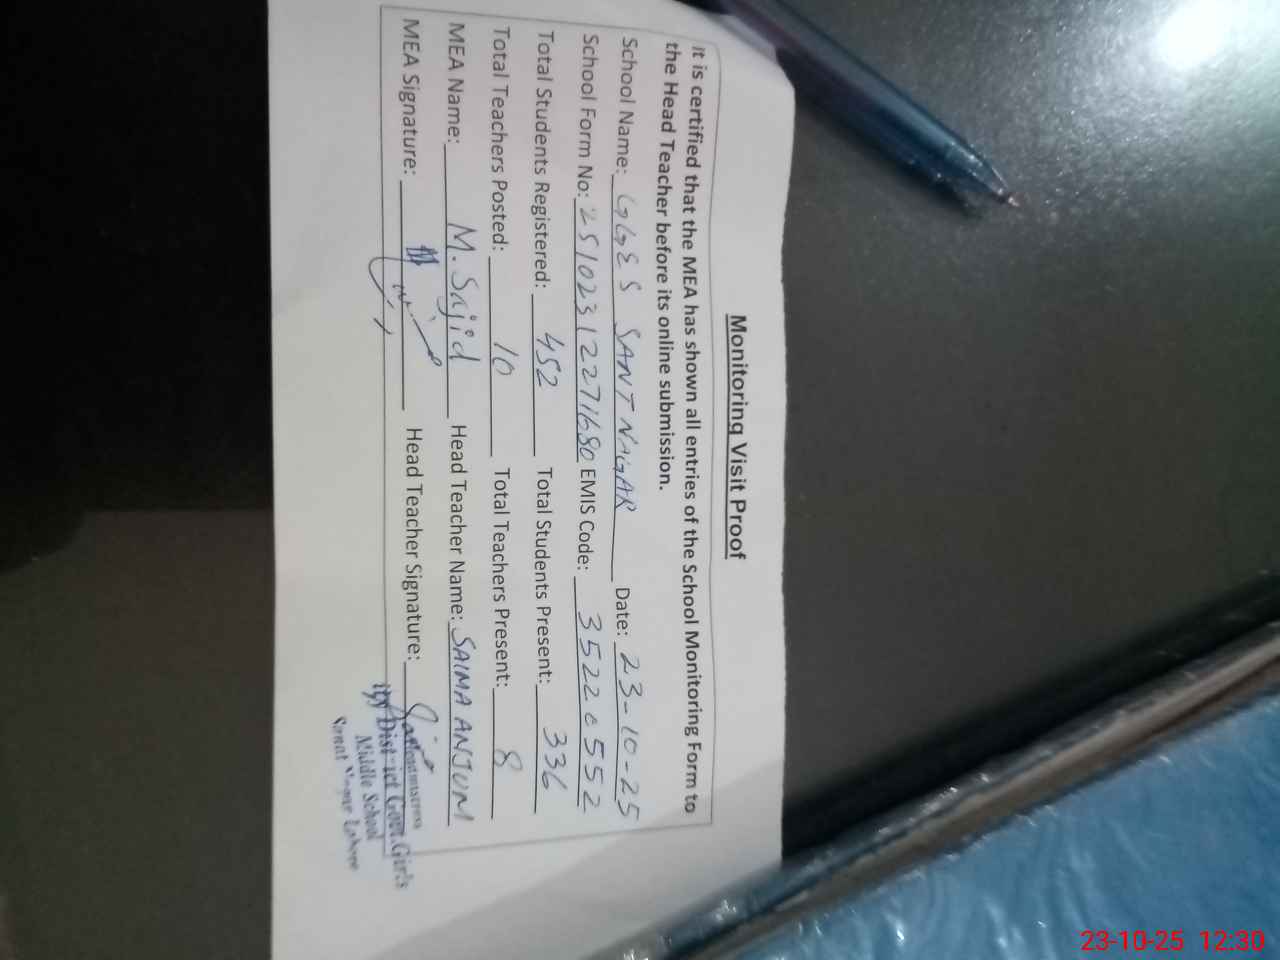 Monitoring Visit Proof
It is certified that the MEA has shown all entries of the School Monitoring Form to
the Head Teacher before its online submission.
School Name: GGES SANT NAGAR Date: 23-10-25
School Form No: 25102312271680 EMIS Code: 35220552
Total Students Registered: 452 Total Students Present: 336
Total Teachers Posted: 10 Total Teachers Present: 8
MEA Name: M. Sajid Head Teacher Name: SAIMA ANJUM
MEA Signature: Head Teacher Signature:
Headmistress
District Govt. Girls
Middle School
Sanat Nagar Lahore
23-10-25 12:30